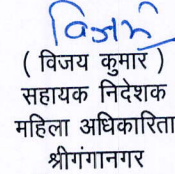 ( विजय कुमार )
सहायक निदेशक
महिला अधिकारिता
श्रीगंगानगर